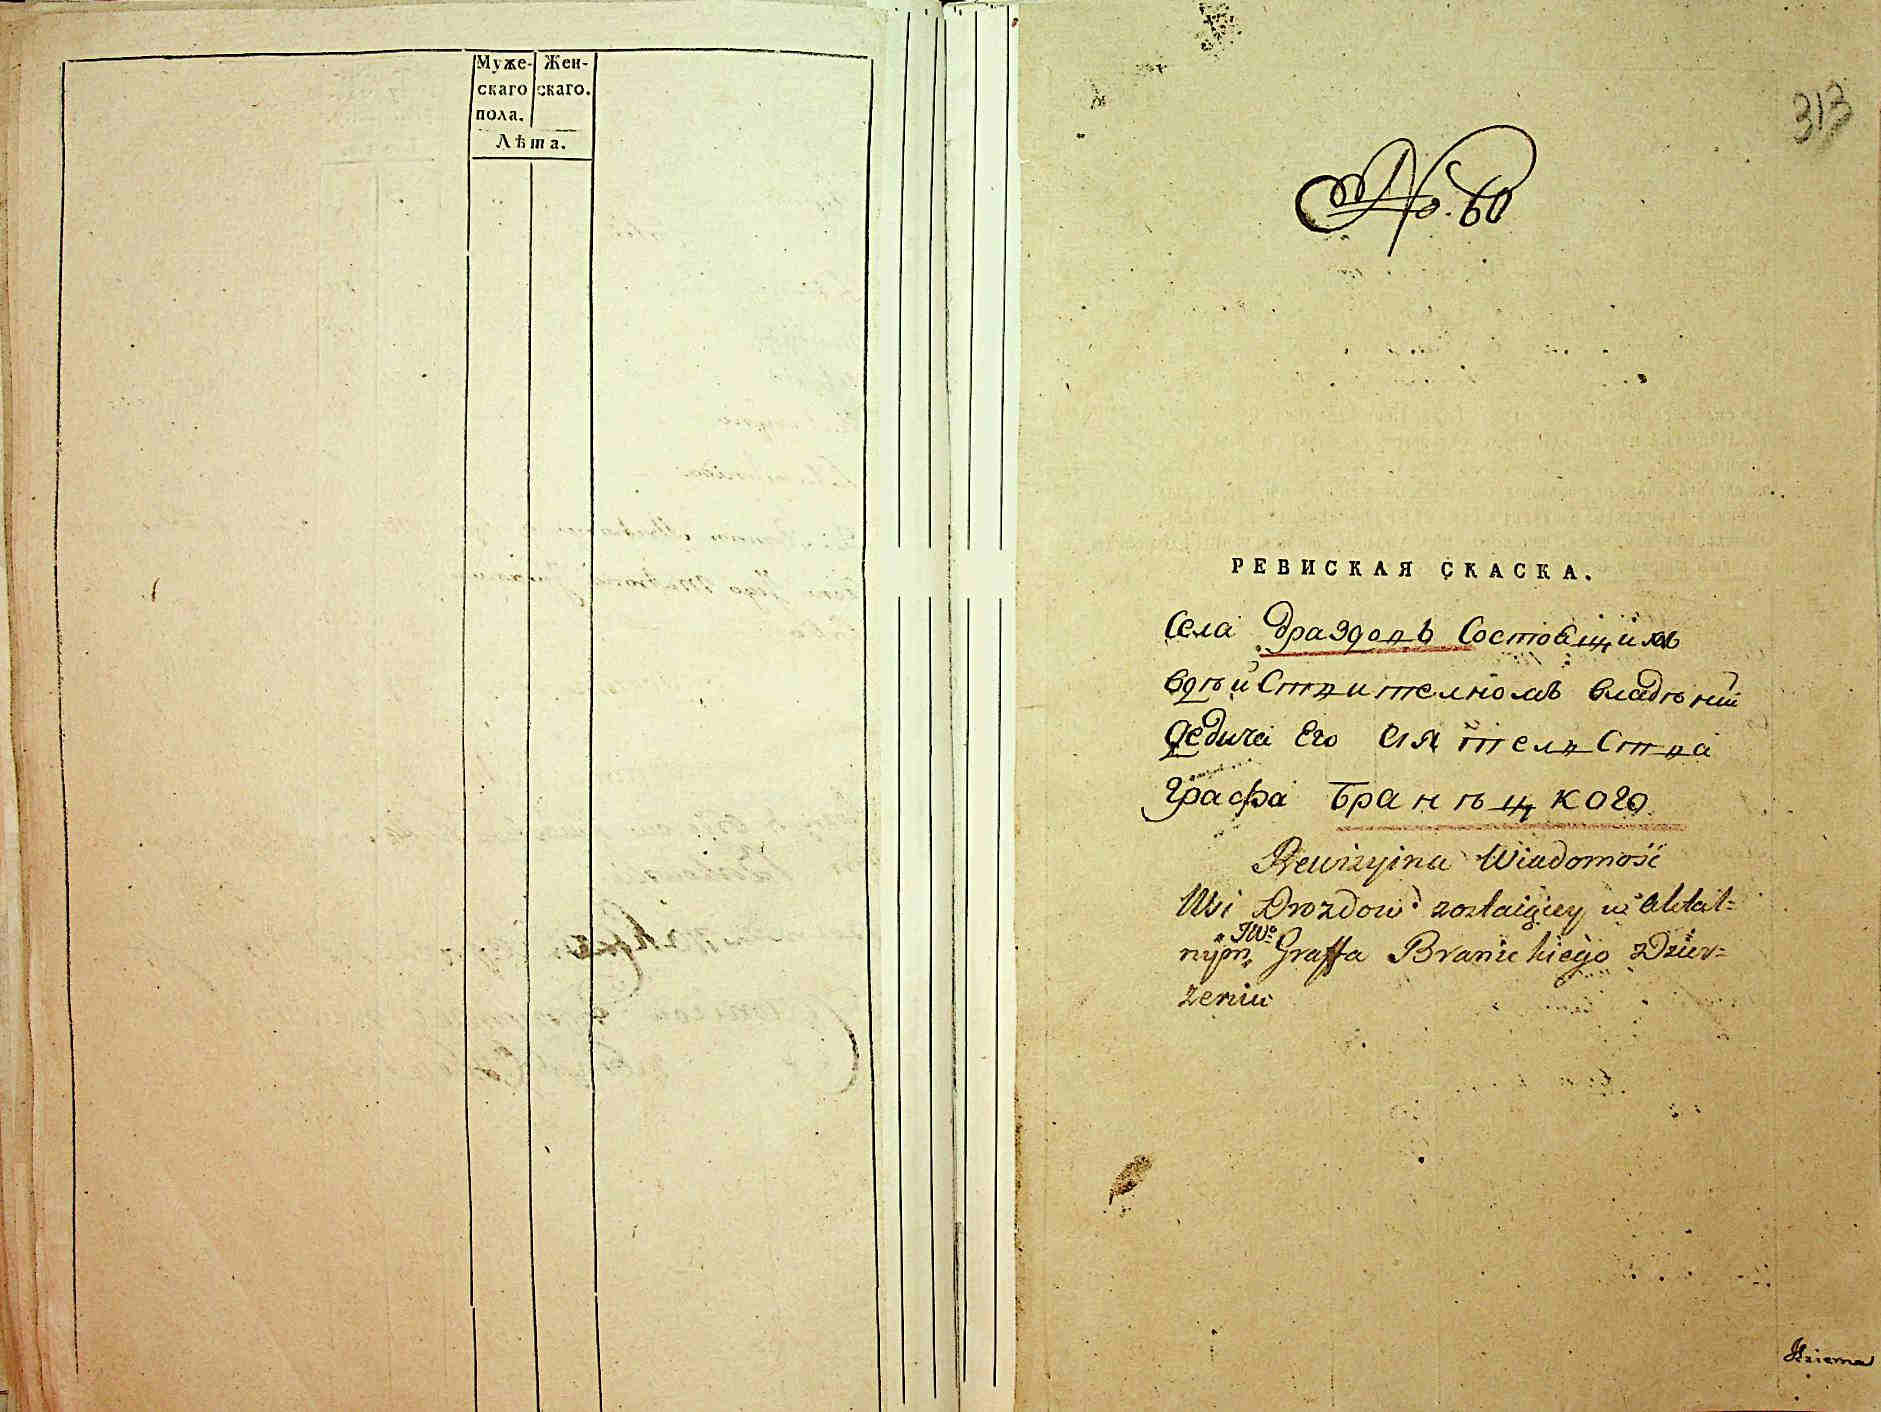 Муже-
скаго
пола.
Жен-
скаго.
Лѣта.
313
No. 60
РЕВИСКАЯ СКАСКА.
Села Драздовъ Состоящимъ
вдѣйствителномъ владѣнии
Дедича Его Сиятелства
Графа Бранѣцкого
Rewizyina Wiadomość
Wsi Drozdow zostaiącey w Aktal-
JWo
nym Graffa Branickiego zDzier-
zeniu